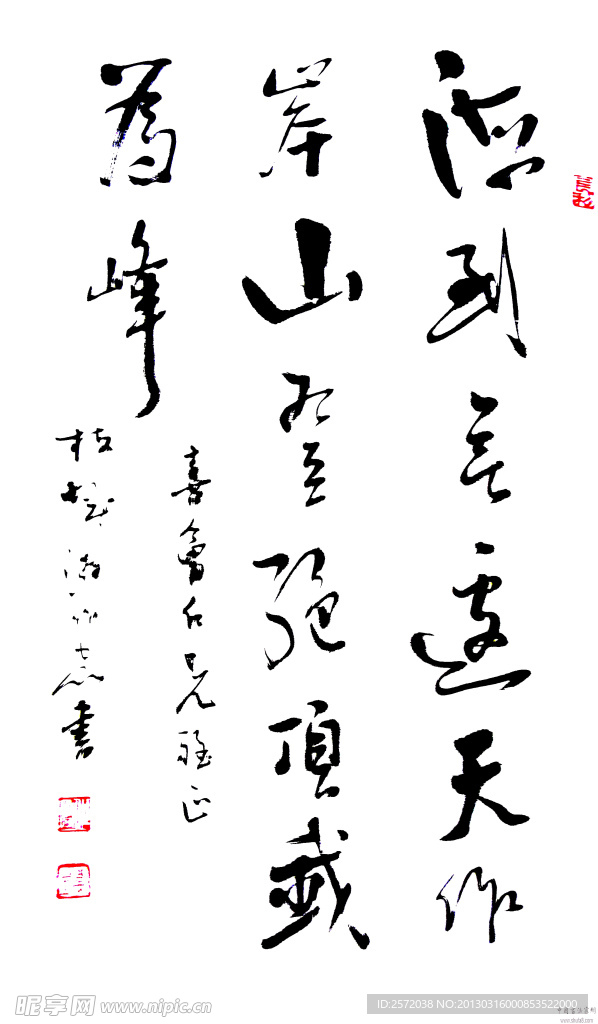 海到無邊天作
岸山登絕頂我
為峰
仁兄雅正
昵享网 www.nipic.cn
ID:2572038 NO:20130316000853522000